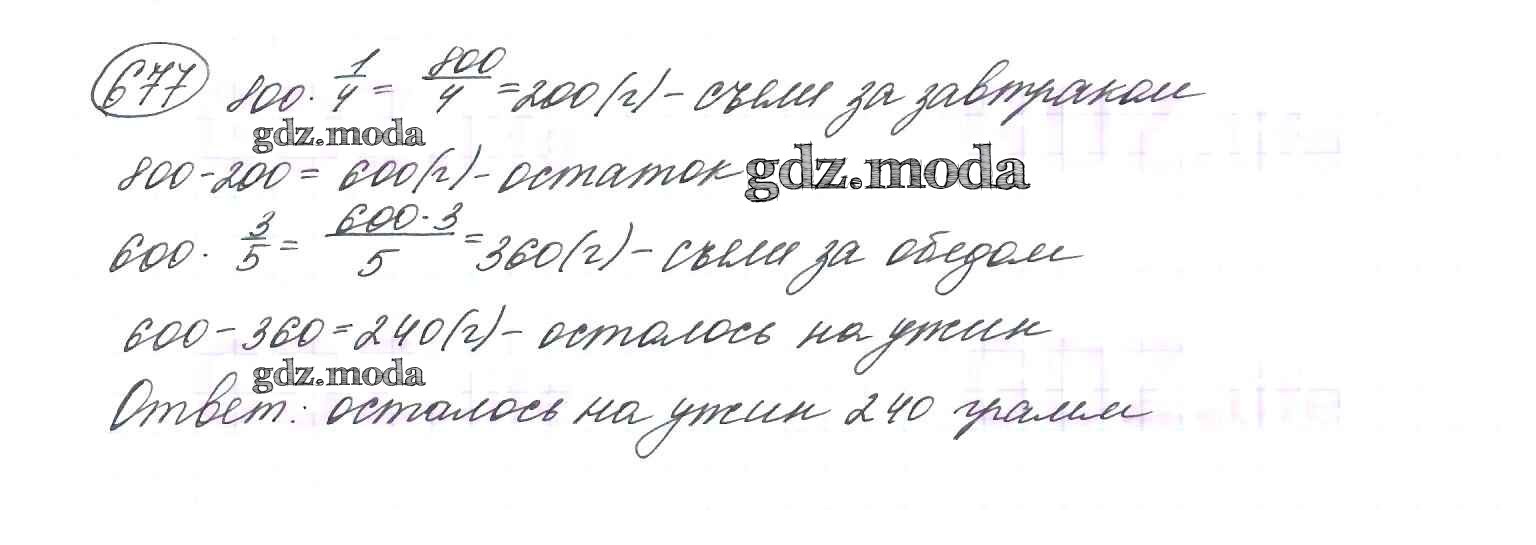 677 800 · 1/4 = 800/4 = 200 (г) - съели за завтраком
gdz.moda
800 - 200 = 600 (г) - остаток gdz.moda
600 · 3/5 = 600 · 3/5 = 360 (г) - съели за обедом
600 - 360 = 240 (г) - осталось на ужин
gdz.moda
Ответ: осталось на ужин 240 грамм